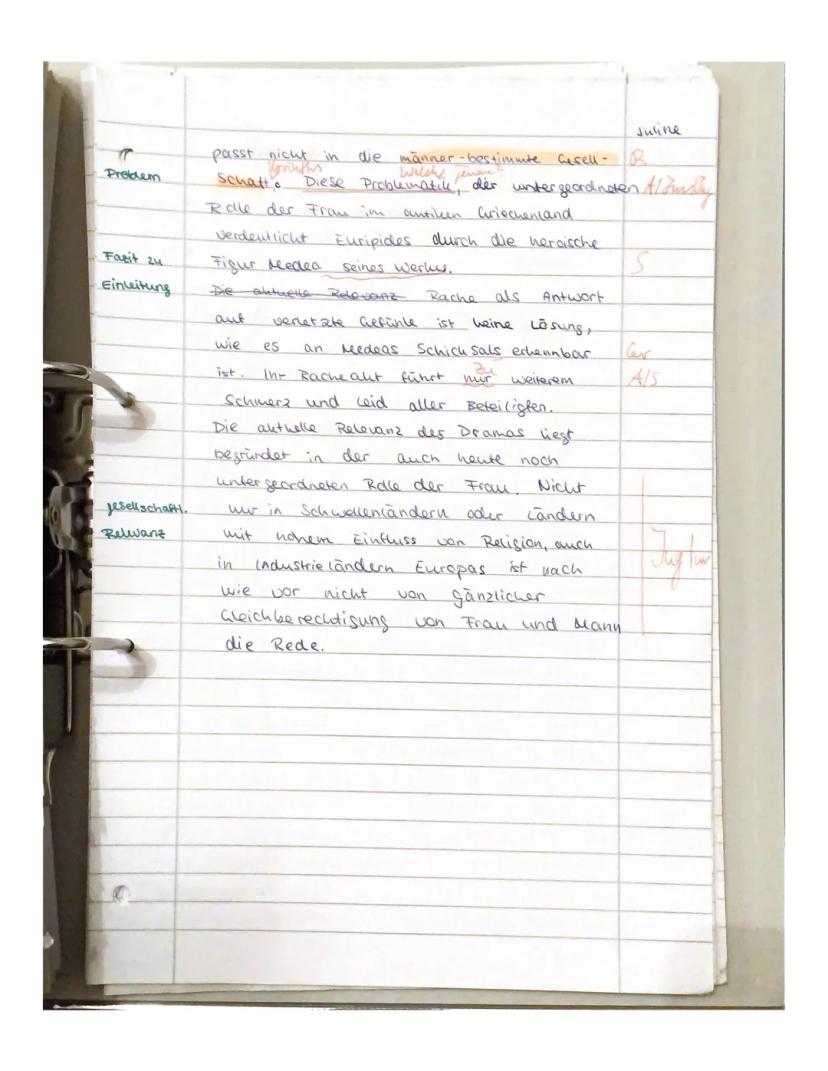 Juline
passt nicht in die männer-bestimmte Gesell- R
Problem schaft. Diese Problematik, der untergeordneten
Rolle der Frau im antiken Griechenland
verdeutlicht Euripides durch die heroische
Fazit zu Figur Medea seines Werkes. S
Einleitung Die aktuelle Relevanz Rache als Antwort
auf verletzte Gefühle ist keine Lösung,
wie es an Medeas Schicksals erkennbar
ist. Ihr Racheakt führt nur zu weiterem A/S
Schmerz und Leid aller Beteiligten.
Die aktuelle Relevanz des Dramas liegt
begründet in der auch heute noch
untergeordneten Rolle der Frau. Nicht
gesellschaftl. nur in Schwellenländern oder Ländern
Relevanz mit hohem Einfluss von Religion, auch
in Industrieländern Europas ist nach
wie vor nicht von gänzlicher
Gleichberechtigung von Frau und Mann
die Rede.